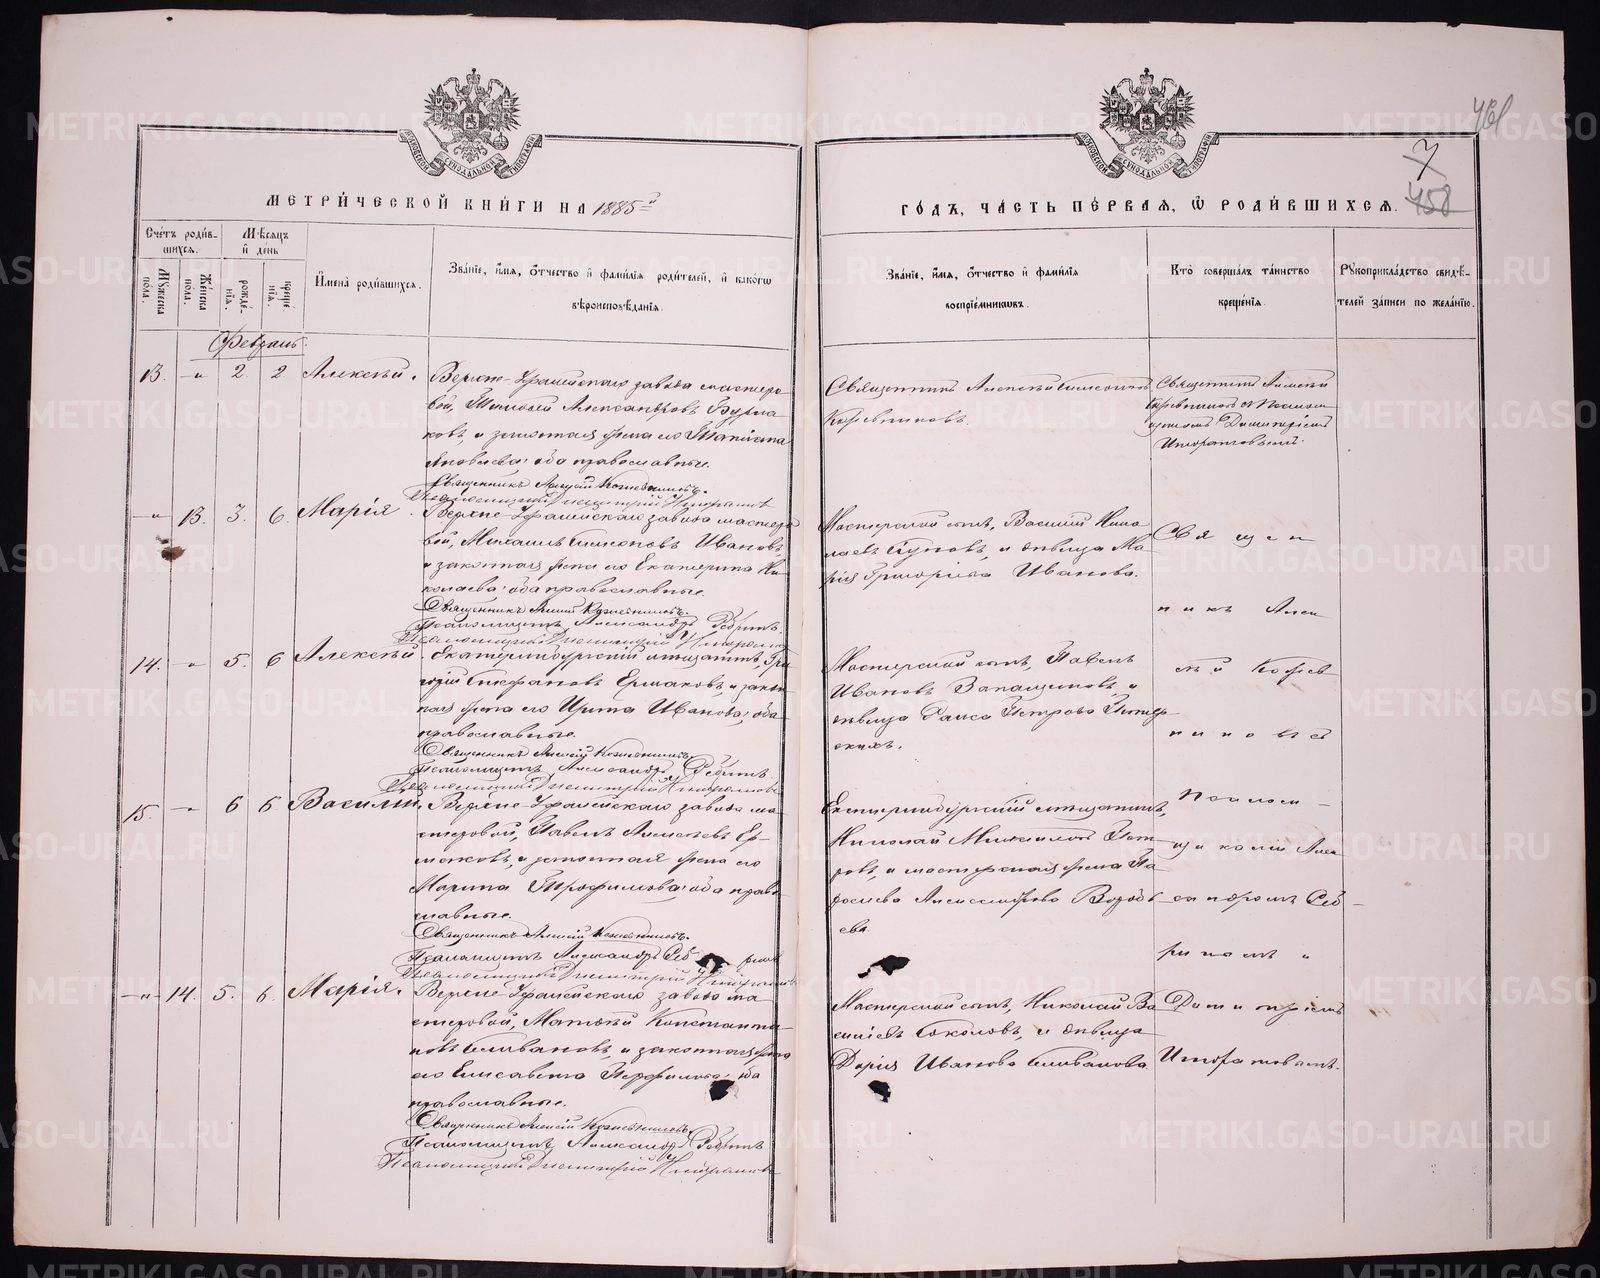 461
7
458
МОСКОВСКОЙ СѴНОДАЛЬНОЙ ТИПОГРАФІИ
МОСКОВСКОЙ СѴНОДАЛЬНОЙ ТИПОГРАФІИ
МЕТРИ́ЧЕСКОЙ КНИ́ГИ НА 1885й
ГО́ДЪ, ЧА́СТЬ ПЕ́РВАЯ, Ѡ РОДИ́ВШИХСЯ.
Сче́тъ роди́в-
шихся.
Мѣсяцъ
и҆ де́нь
Мꙋ́жеска
пола.
Же́нска
пола.
рожде́-
нїя.
креще́-
нїя.
И҆мена̀ роди́вшихся.
Зва́нїе, и҆́мя, ѻ҆́тчество и҆ фами́лїя роди́телей, и҆ како́гѡ
вѣроисповѣ́данїя.
Зва́нїе, и҆́мя, ѻ҆́тчество и҆ фами́лїя
воспрїе́мникѡвъ.
Кто̀ соверша́лъ та́инство
креще́нїя.
Рꙋкоприкла́дство свидѣ́-
телей за́писи по жела́нїю.
Февраль
13. -"- 2. 2 Алексѣй.
Верхне-Уфалейскаго завода мастеро-
вой, Тимофей Александровъ Бурма-
ковъ и законная жена его Татіана
Яковлева: оба православные.
Священникъ Алексій Кожевниковъ.
Псаломщикъ Димитрій
Священникъ Алексѣй
Кожевниковъ.
Священникъ Алексѣй
Кожевниковъ съ Псалом-
щикомъ Димитріемъ
-"- 13. 3. 6. Марія.
Верхне-Уфалейскаго завода мастеро-
вой, Михаилъ Симеоновъ Ивановъ,
и законная жена его Екатерина Ни-
колаева: оба православные.
Священникъ Алексій Кожевниковъ.
Псаломщикъ Александръ
Псаломщикъ Димитрій
Мастерской сынъ, Василій Нико-
лаевъ и дѣвица Ма-
рія Григоріева Иванова.
Священ
никъ Алек
14. -"- 5. 6 Алексѣй
Екатеринбургскій мѣщанинъ, Гри-
горій Стефановъ Ермаковъ, и закон-
ная жена его Ирина Иванова; оба
православные.
Священникъ Алексій Кожевниковъ.
Псаломщикъ Александръ
Псаломщикъ Димитрій
Мастерской сынъ, Павелъ
Ивановъ Запащиковъ и
дѣвица Раиса Петрова
сѣй Кожев
никовъ съ
15. -"- 6 6 Василій.
Верхне-Уфалейскаго завода ма-
стеровой, Павелъ Алексѣевъ Ер-
маковъ, и законная жена его
Марина Трофимова: оба право-
славные.
Священникъ Алексій Кожевниковъ.
Псаломщикъ Александръ
Псаломщикъ Димитрій
Екатеринбургскій мѣщанинъ,
Николай Михаиловъ Пет-
ровъ, и мастерская жена Па-
раскева Александрова Воробь-
ева.
Псалом-
щиками Алек
сандромъ
и
-"- 14. 5. 6. Марія.
Верхне-Уфалейскаго завода ма-
стеровой, Матѳей Константи-
новъ Селивановъ, и законная жена
его Елисавета Перфилова: оба
православные.
Священникъ Алексій Кожевниковъ.
Псаломщикъ Александръ
Псаломщикъ Димитрій
Мастерской сынъ, Николай Ва-
силіевъ Соколовъ, и дѣвица
Дарія Иванова Селиванова
Димитріемъ